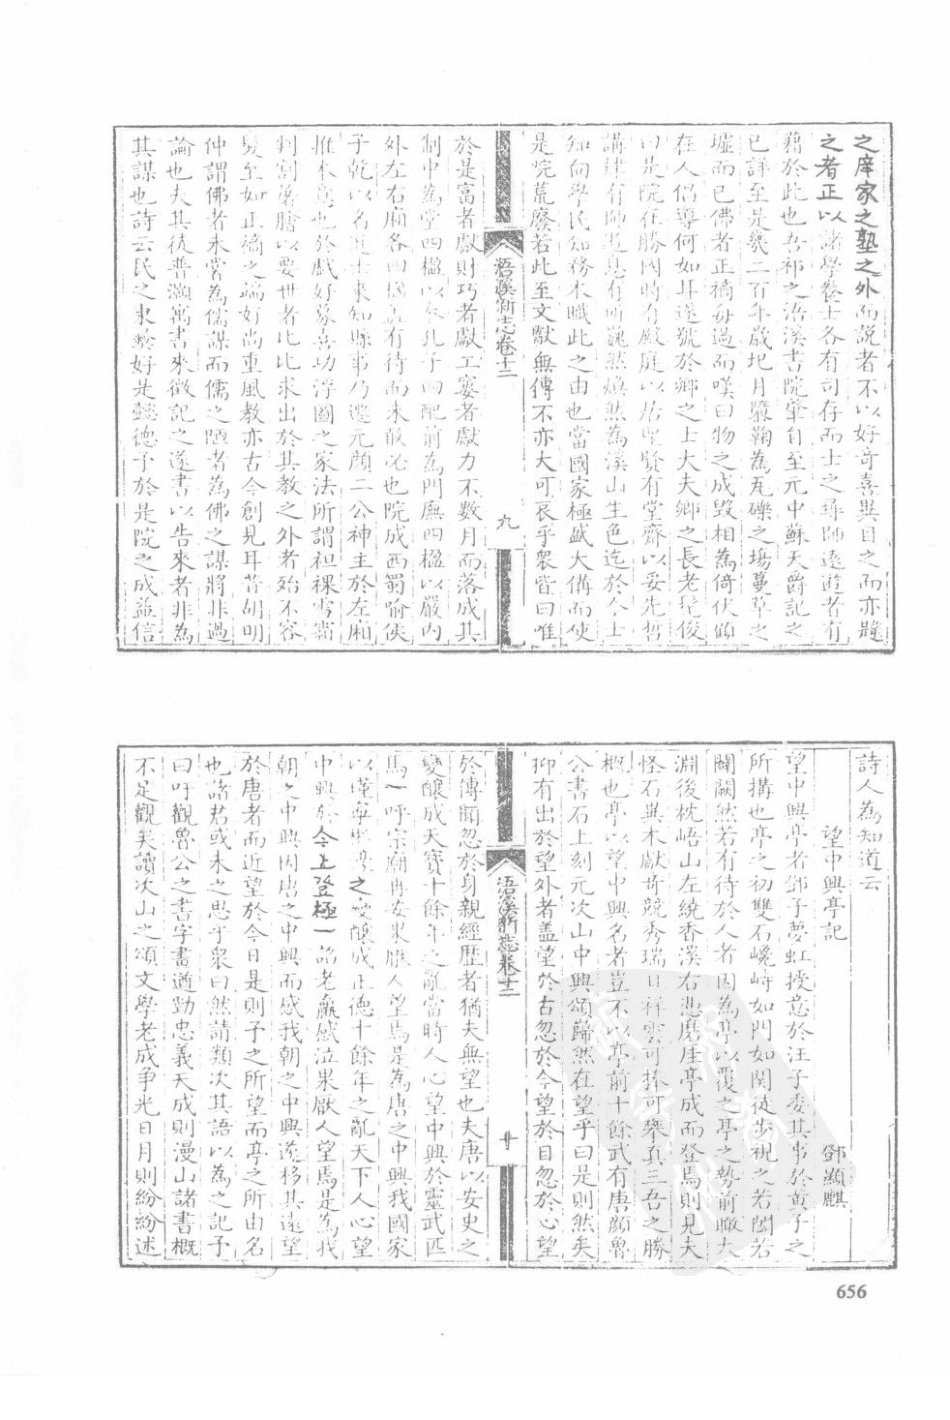 之庠家之塾之外而説者不以好奇喜異目之而亦韙
之者正以諸學養士各有司存而士之尋師遠遊者有
藉於此也吾祁之浯溪書院肇自至元中蘇天爵記之
已詳至是幾二百年歲圯月隳鞠為瓦礫之場蔓草之
墟而已佛者正禧每過而嘆曰物之成毀相為倚伏顧
在人倡導何如耳遂號於鄉之士大夫鄉之長老髦俊
曰是院在勝國時有殿庭以居聖賢有堂齋以妥先哲
講肄有師遊息有所巍然煥然為溪山生色迄於今士
知向學民知務本職此之由也當國家極盛大備而使
是院荒廢若此至文獻無傳不亦大可哀乎衆皆曰唯
浯溪新志卷十二
九
於是富者獻財巧者獻工窶者獻力不數月而落成其
制中為堂四楹以祀孔子四配前為門廡四楹以嚴内
外左右廂各四楹有待而未敢必也院成西蜀喻侯
子乾以名進士來知縣事乃遷元顔二公神主於左廂
推本意也於戲好募喜功浮圖之家法所謂袒裸
判割以要世者比比求出於其教之外者殆不容
髮至如正禧之端好尚重風教亦古今創見耳昔胡明
仲謂佛者未嘗為儒謀而儒之陋者為佛之謀將非過
論也夫其徒普灝寓書來徵記之遂書以告來者非為
其謀也詩云民之秉彝好是懿德予於是院之成益信
詩人為知道云
望中興亭記
鄧顯麒
望中興亭者鄧子夢虹授意於汪子委其事於黄子之
所搆也亭之初雙石巉峙如門如関徒步視之若闊若
闕然若有待於人者因為亭以覆之亭之勢前瞰大
淵後枕峿山左繞香溪右悲磨崖亭成而登焉則見夫
怪石異木獻奇競秀瑞日祥雲可捧可攀真三吾之勝
概也亭以望中興名者豈不以亭前十餘武有唐顔魯
公書石上刻元次山中興頌巋然在望乎曰是則然矣
抑有出於望外者盖望於古忽於今望於目忽於心望
浯溪新志卷十二
廿
於傳聞忽於身親經歷者猶夫無望也夫唐以安史之
變釀成天寳十餘年之亂當時人心望中興於靈武匹
馬一呼宗廟再安果愜人望焉是為唐之中興我國家
以瑾寧之變釀成正德十餘年之亂天下人心望
中興於今上登極一詔老羸感泣果厭人望焉是為我
朝之中興因唐之中興而感我朝之中興遂移其遠望
於唐者而近望於今日是則予之所望而亭之所由名
也諸君或未之思乎衆曰然請類次其語以為之記予
曰吁觀魯公之書字畫遒勁忠義天成則漫山諸書概
不足觀矣讀次山之頌文學老成争光日月則紛紛述
656